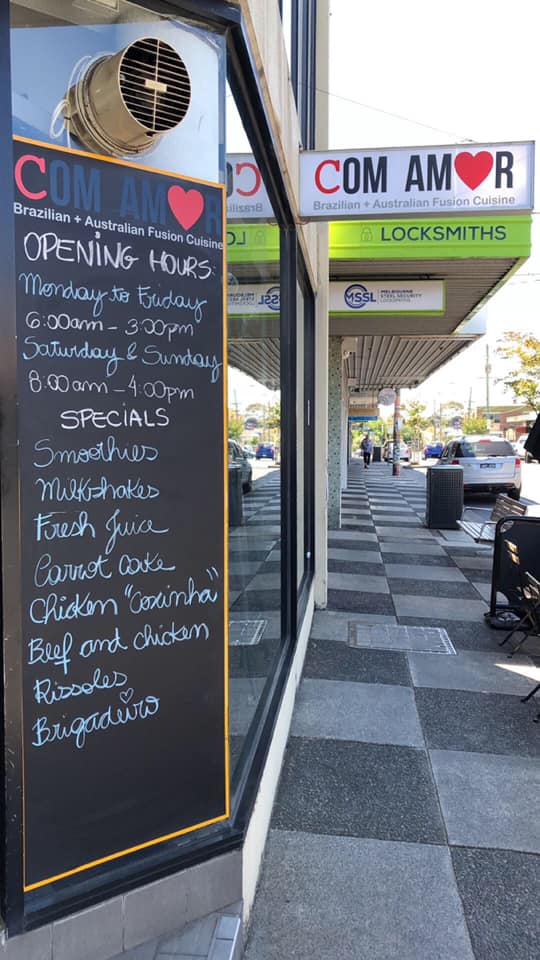 COM AMOR
Brazilian + Australian Fusion Cuisine
OPENING HOURS:
Monday to Friday
6:00am - 3:00pm
Saturday & Sunday
8:00am - 4:00pm
SPECIALS
Smoothies
Milkshakes
Fresh Juice
Carrot Cake
Chicken "Coxinha"
Beef and chicken
Rissoles
Brigadeiro
COM AMOR
Brazilian + Australian Fusion Cuisine
LOCKSMITHS
MSSL
MELBOURNE
STEEL SECURITY
LOCKSMITHS